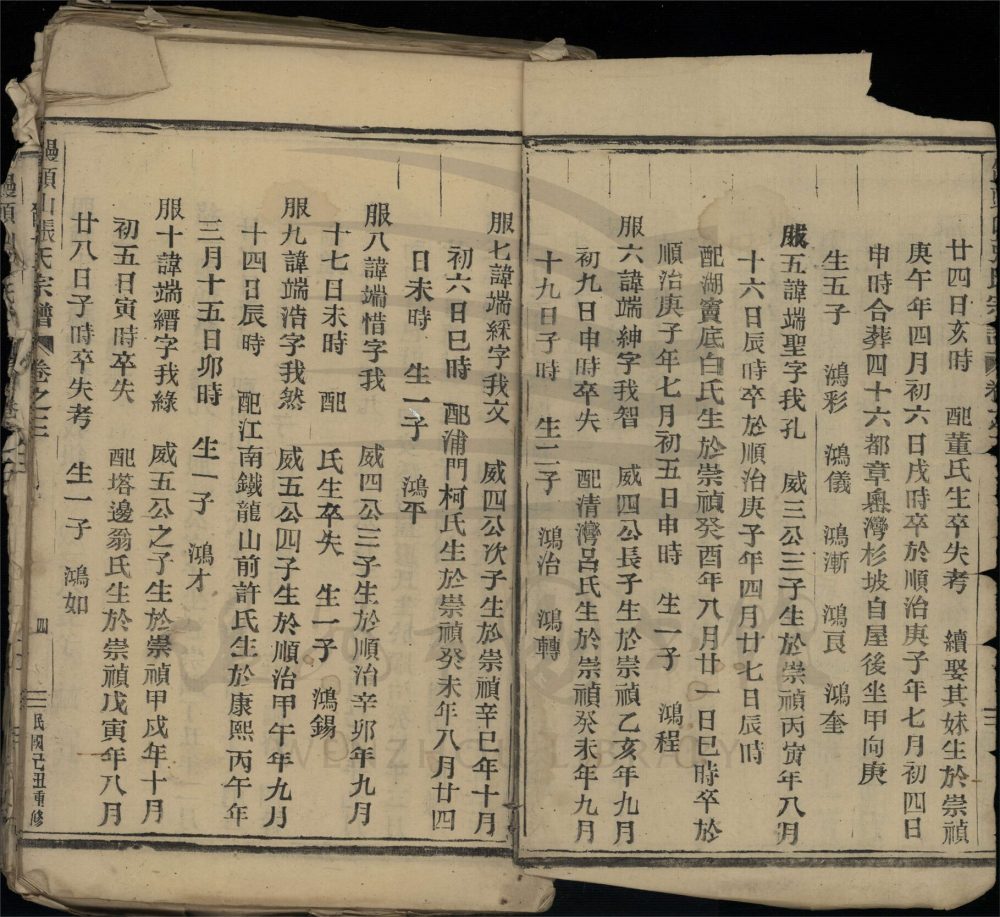 廿四日亥時 配董氏生卒失考 續娶其妹生於崇禎
庚午年四月初六日戌時卒於順治庚子年七月初四日
申時合葬四十六都章嶴灣杉坡自屋後坐甲向庚
生五子 鴻彩 鴻儀 鴻漸 鴻良 鴻奎
服五諱端聖字我孔 威三公三子生於崇禎丙寅年八月
十六日辰時卒於順治庚子年四月廿七日辰時
配湖竇底白氏生於崇禎癸酉年八月廿一日巳時卒於
順治庚子年七月初五日申時 生一子 鴻程
服六諱端紳字我智 威四公長子生於崇禎乙亥年九月
初九日申時卒失 配清灣呂氏生於崇禎癸未年九月
十九日子時 生二子 鴻治 鴻轉
服七諱端綵字我文 威四公次子生於崇禎辛巳年十月
初六日巳時 配蒲門柯氏生於崇禎癸未年八月廿四
日未時 生一子 鴻平
服八諱端惜字我 威四公三子生於順治辛卯年九月
十七日未時 配 氏生卒失 生一子 鴻錫
服九諱端浩字我然 威五公四子生於順治甲午年九月
十四日辰時 配江南鐵龍山前許氏生於康熙丙午年
三月十五日卯時 生一子 鴻才
服十諱端縉字我緣 威五公之子生於崇禎甲戌年十月
初五日寅時卒失 配塔邊翁氏生於崇禎戊寅年八月
廿八日子時卒失考 生一子 鴻如
饅頭山張氏宗譜 卷之三 四 民國己丑重修
WENZHOU LIBRARY